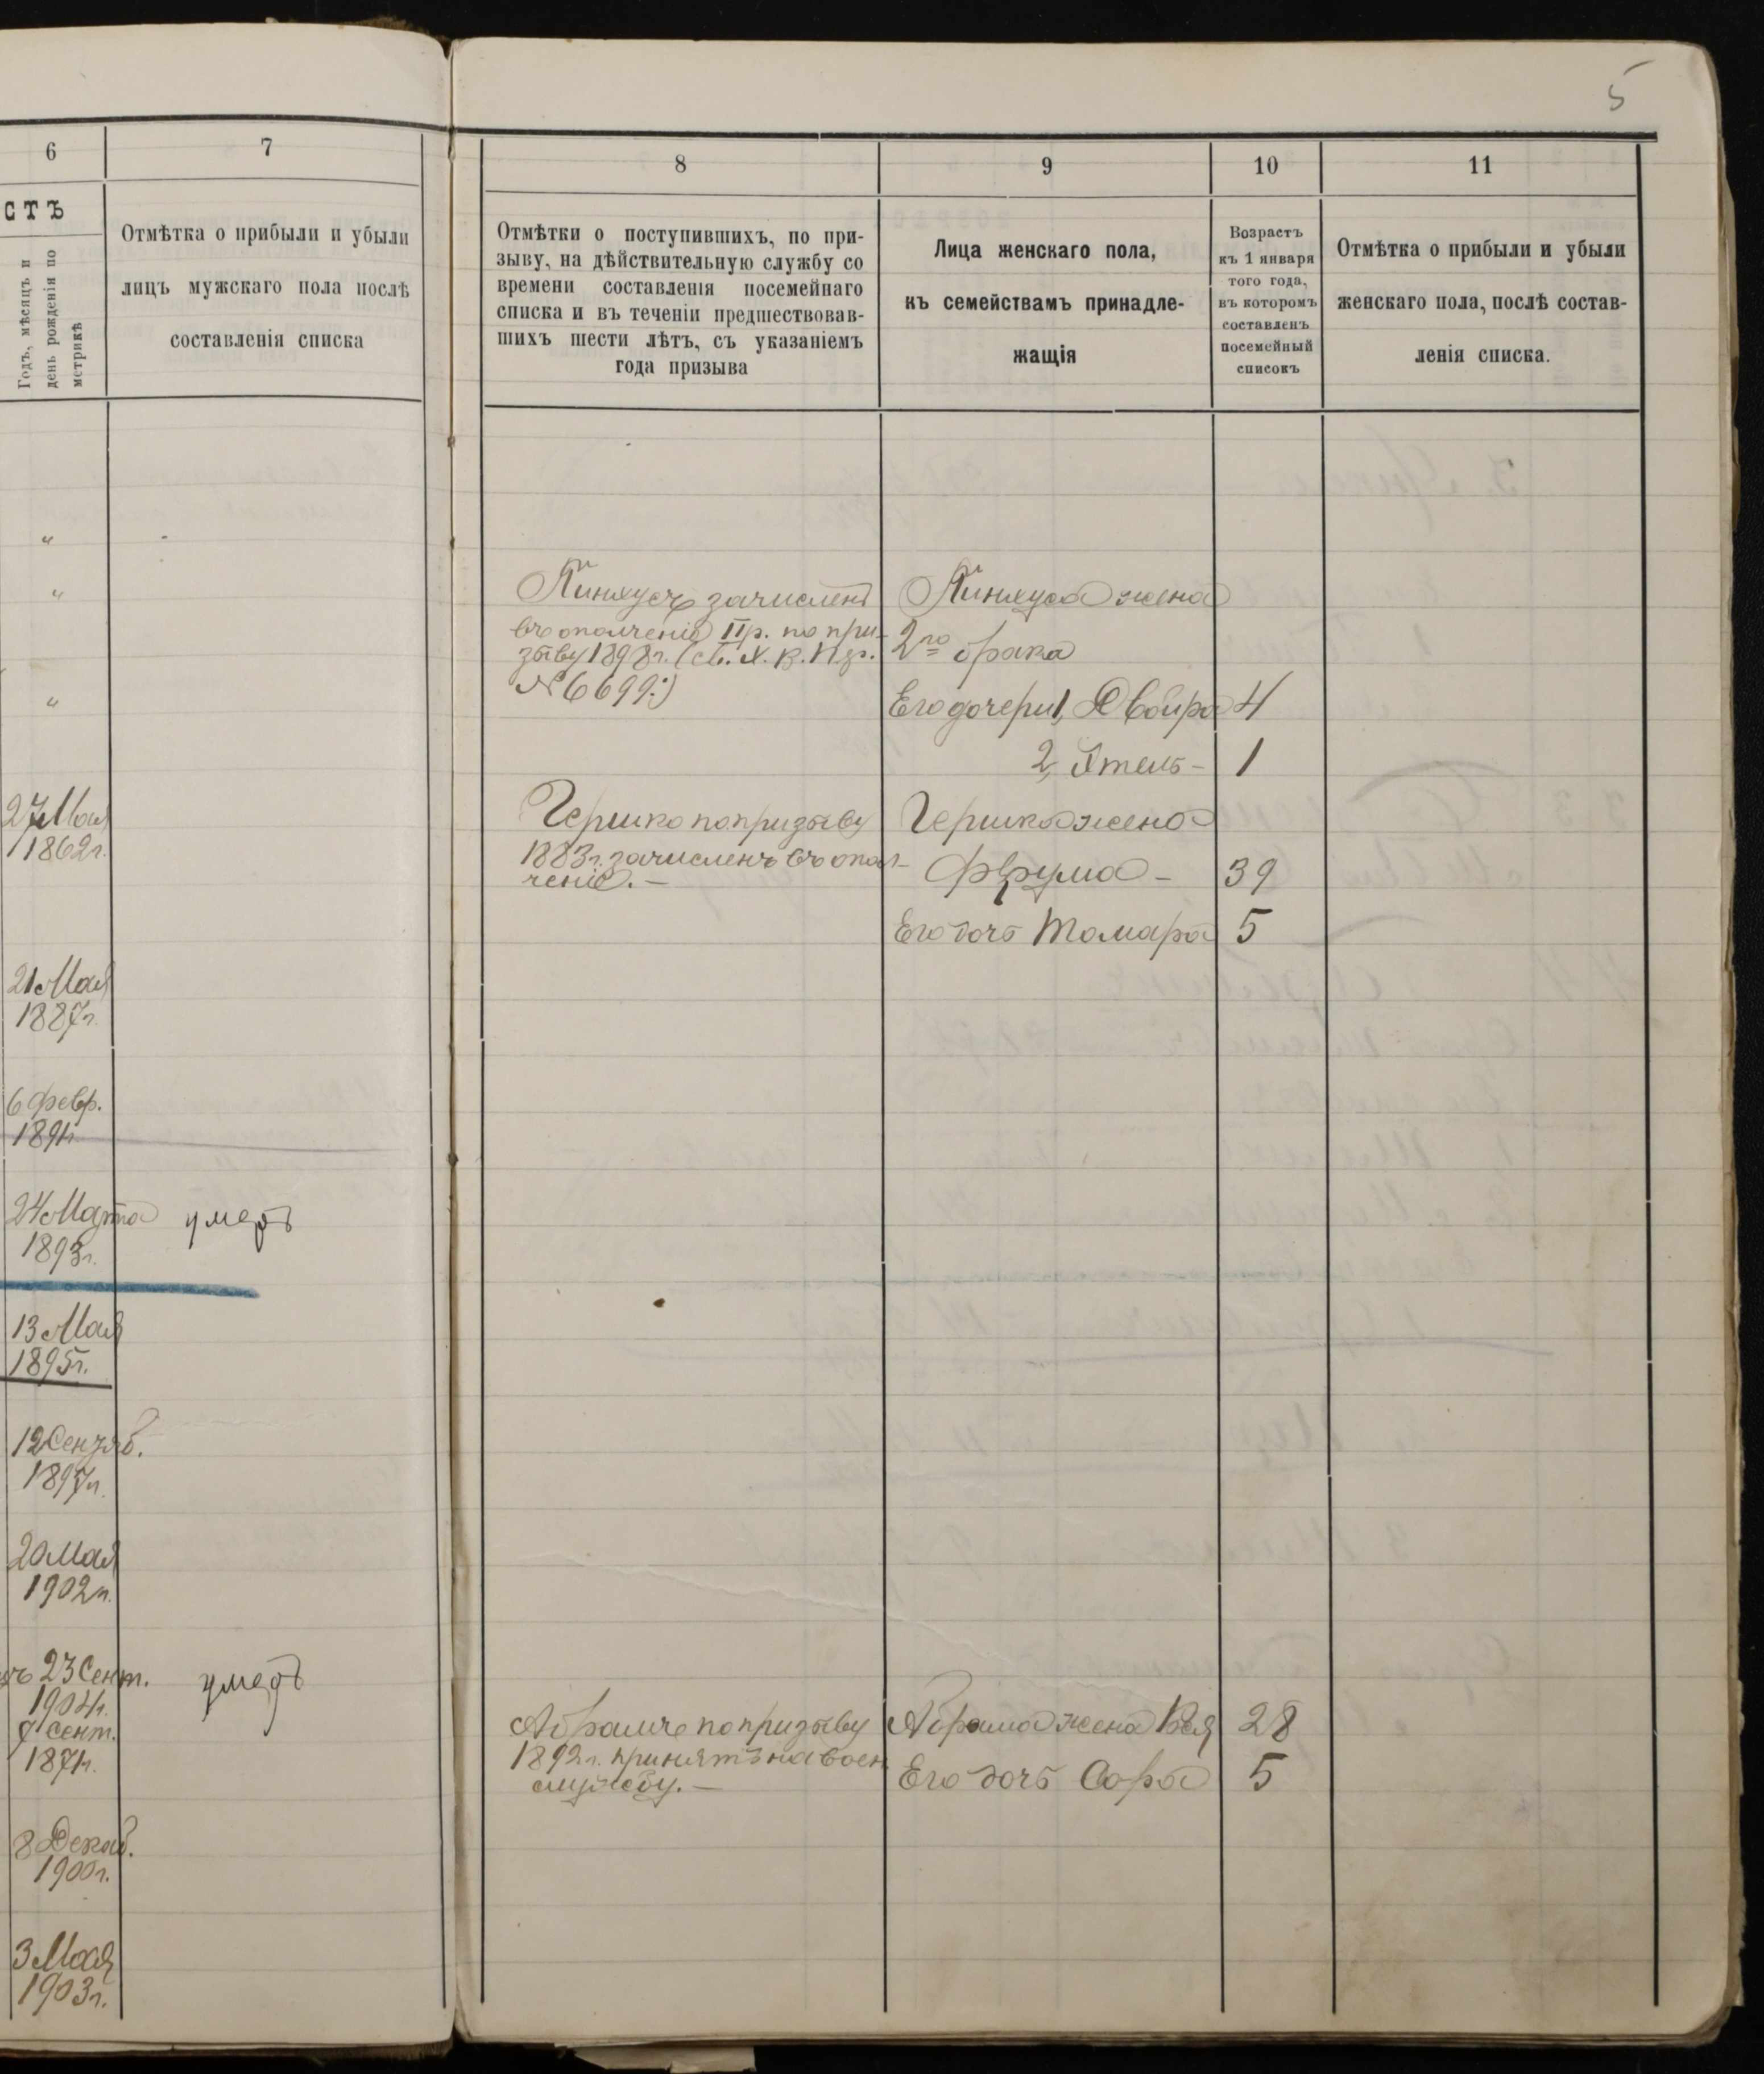 5
6
7
СТЪ
Годъ, мѣсяцъ и
день рожденія по
метрикѣ
Отмѣтка о прибыли и убыли
лицъ мужскаго пола послѣ
составленія списка
"
"
"
27 Мая
1862г.
21 Мая
1887г.
6 Февр.
1891г.
24 Марта
умеръ
1893г.
13 Мая
1895г.
12 Сентяб.
1897г.
20 Мая
1902г.
23 Сент.
умеръ
1904г.
сент.
1871г.
8 Декаб.
1900г.
3 Мая
1903г.
8
9
10
11
Отмѣтки о поступившихъ, по при-
зыву, на дѣйствительную службу со
времени составленія посемейнаго
списка и въ теченіи предшествовав-
шихъ шести лѣтъ, съ указаніемъ
года призыва
Лица женскаго пола,
къ семействамъ принадле-
жащія
Возрастъ
къ 1 января
того года,
въ которомъ
составленъ
посемейный
списокъ
Отмѣтка о прибыли и убыли
женскаго пола, послѣ состав-
ленія списка.
Пинхусъ зачисленъ
въ ополченіе II р. по при-
зыву 1898г. (св. Х. В.
№ 6699.)
Пинхуса жена
2го брака
Его дочери 1, Двойра 4
2, Этель - 1
Гершко по призыву
1883г. зачисленъ въ опол-
ченіе. —
Гершка жена
Фрума - 39
Его дочь Тамара 5
Абрамъ по призыву
1892г. принятъ на воен
службу. —
Абрама жена 28
Его дочь Сара 5